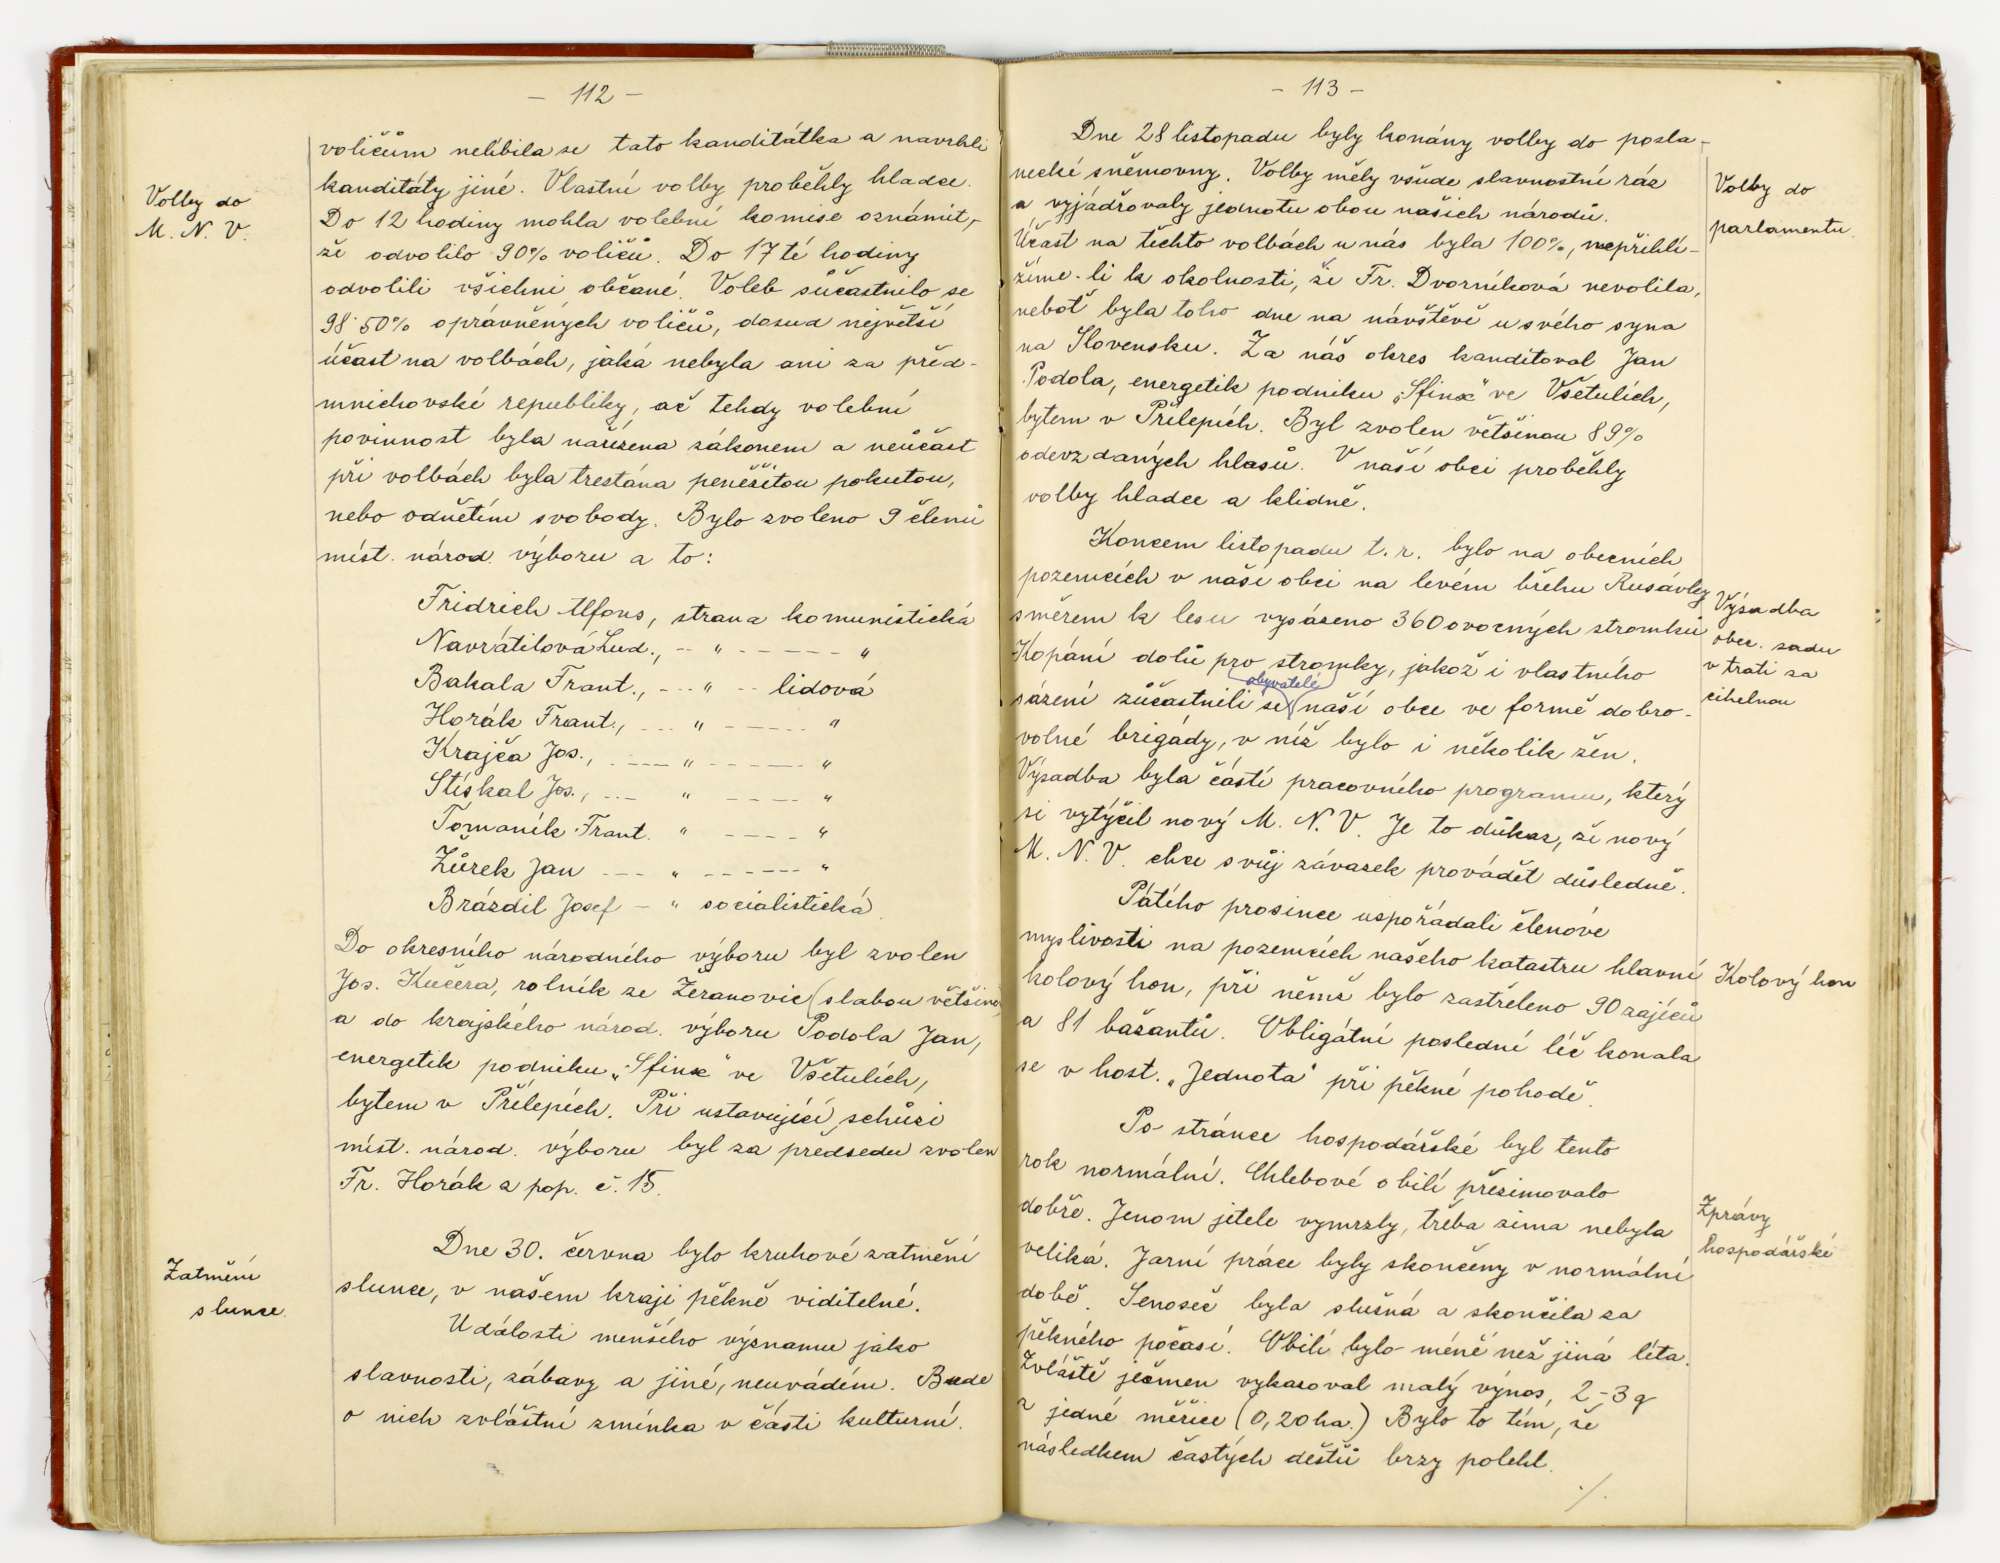 - 112 -
voličům nelíbila se tato kanditátka a navrhli
kanditáty jiné. Vlastní volby proběhly hladce.
Volby do
M. N. V.
Do 12 hodiny mohla volební komise oznámit,
že odvolilo 90% voličů. Do 17 té hodiny
odvolili všichni občané. Voleb súčastnilo se
98·50% oprávněných voličů, dosud největší
účast na volbách, jaká nebyla ani za před-
mnichovské republiky, ač tehdy volební
povinnost byla nařízena zákonem a neúčast
při volbách byla trestána peněžitou pokutou,
nebo odnětím svobody. Bylo zvoleno 9 členů
míst. národ. výboru a to:
Fridrich Alfons, strana komunistická
Navrátilová Lud., -- " ----- "
Bakala Frant., --- " -- lidová
Horák Frant., --- " ----- "
Krajča Jos., ---- " ----- "
Stískal Jos., --- " ---- "
Tomaník Frant. " ---- "
Žůrek Jan --- " ------ "
Brázdil Josef - " socialistická.
Do okresního národního výboru byl zvolen
Jos. Kučera, rolník ze Žeranovic (slabou většinou)
a do krajského národ. výboru Podola Jan,
energetik podniku „Sfinx" ve Všetulích,
bytem v Přílepích. Při ustavující schůzi
míst. národ. výboru byl za předsedu zvolen
Fr. Horák z pop. č. 15.
Dne 30. června bylo kruhové zatmění
Zatmění
slunce.
slunce, v našem kraji pěkně viditelné.
Události menšího významu jako
slavnosti, zábavy a jiné, neuvádím. Bude
o nich zvláštní zmínka v části kulturní.
- 113 -
Dne 28 listopadu byly konány volby do posla-
necké sněmovny. Volby měly všude slavnostní ráz
Volby do
parlamentu.
a vyjádřovaly jednotu obou našich národů.
Účast na těchto volbách u nás byla 100%, nepřihlí-
žíme-li k okolnosti, že Fr. Dvorníková nevolila,
neboť byla toho dne na návštěvě u svého syna
na Slovensku. Za náš okres kanditoval Jan
Podola, energetik podniku „Sfinx" ve Všetulích,
bytem v Přílepích. Byl zvolen většinou 89%
odevzdaných hlasů. V naší obci proběhly
volby hladce a klidně.
Koncem listopadu t. r. bylo na obecních
pozemcích v naší obci na levém břehu Rusávky
Výsadba
obec. sadu
v trati za
cihelnou
směrem k lesu vysázeno 360 ovocných stromků
Kopání dolů pro stromky, jakož i vlastního
obyvatelé
sázení zůčastnili se naší obce ve formě dobro-
volné brigády, v níž bylo i několik žen.
Výsadba byla částí pracovního programu, který
si vytýčil nový M. N. V. Je to důkaz, že nový
M. N. V. chce svůj závazek provádět důsledně.
Pátého prosince uspořádali členové
myslivosti na pozemcích našeho katastru hlavní
Kolový hon
kolový hon, při němž bylo zastřeleno 90 zajíců
a 81 bažantů. Obligátní poslední léč konala
se v host. „Jednota" při pěkné pohodě.
Po stránce hospodářské byl tento
rok normální. Chlebové obilí přezimovalo
Zprávy
hospodářské
dobře. Jenom jetele vymrzly, třeba zima nebyla
veliká. Jarní práce byly skončeny v normální
době. Senoseč byla slušná a skončila za
pěkného počasí. Obilí bylo méně než jiná léta.
Zvláště ječmen vykazoval malý výnos, 2-3 q
z jedné měřice (0,20 ha.) Bylo to tím, že
následkem častých dešťů brzy polehl.
./.